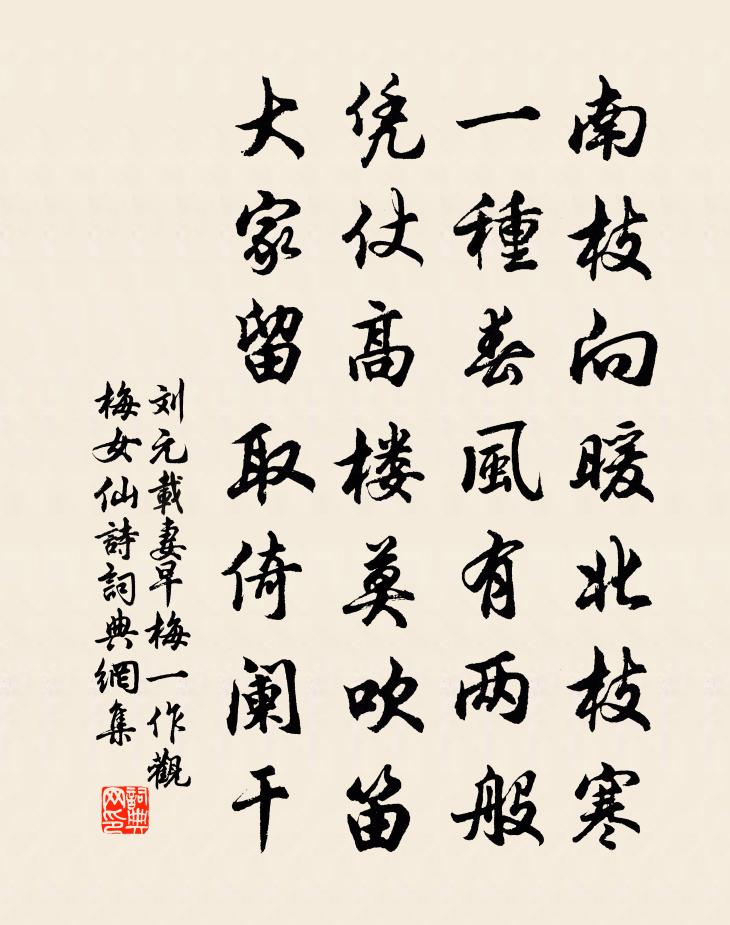 南枝向暖北枝寒
一種春風有两般
凭仗高楼莫吹笛
大家留取倚阑干
刘元載妻早梅一作觀
梅女仙詩詞典網集
詞典
网印